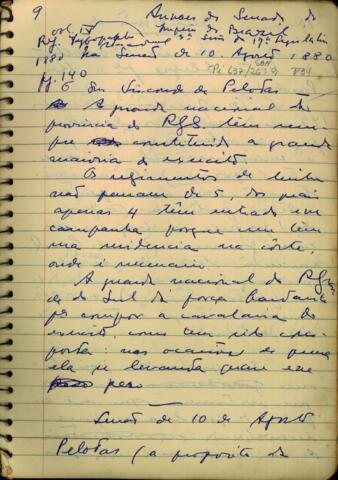 9
Annaes do Senado do
vol. IV Imperio do Brazil
Typographia Nacional 3ª Sess. da 17ª Legislatura
1880 na Sessão de 10 Agosto 1880
pg. 140
O Snr Visconde de Pelotas
A guarda nacional da
provincia do RGS. têm sempre
constituido a grande
maioria do exercito
Os regimentos de linha
não passam de 5, dos quais
apenas 4 têm entrado em
campanha porque um tem
sua residencia na côrte,
onde é necessario
A guarda nacional do RG
do Sul dá força bastante
pª compor a cavalaria do
exercito, como tem sido composta:
nas occasiões de guerra
ella se levanta quase em
peso
Senado de 10 de Agosto
Pelotas (a proposito da